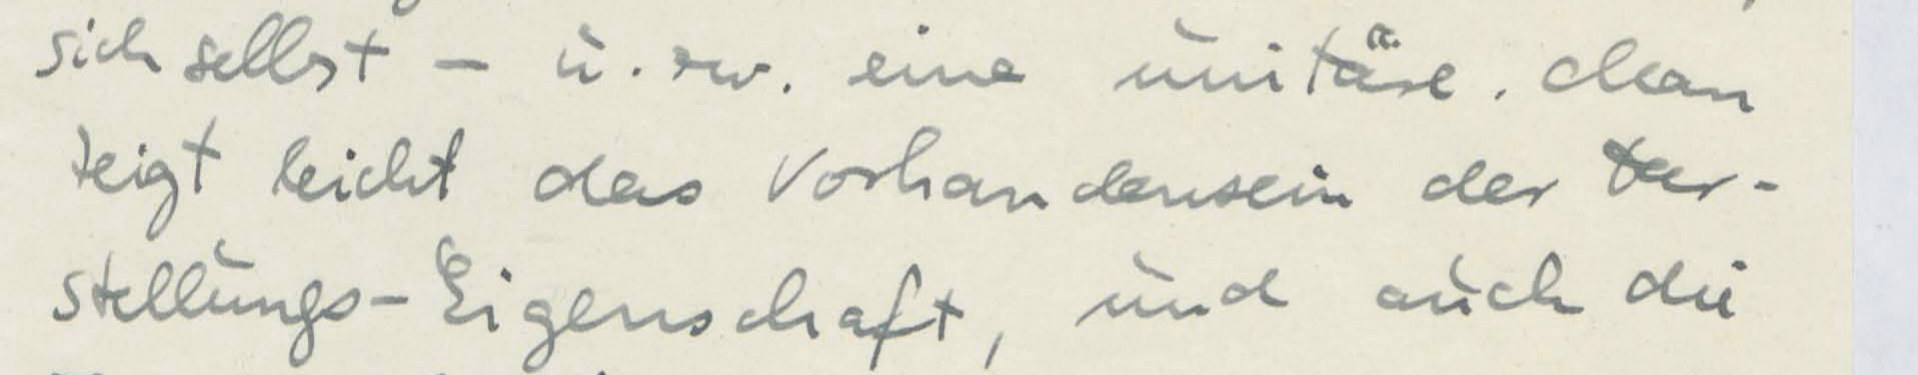 sich selbst – u. zw. eine unitäre. Man
zeigt leicht das Vorhandensein der Dar-
stellungs-Eigenschaft, und auch die